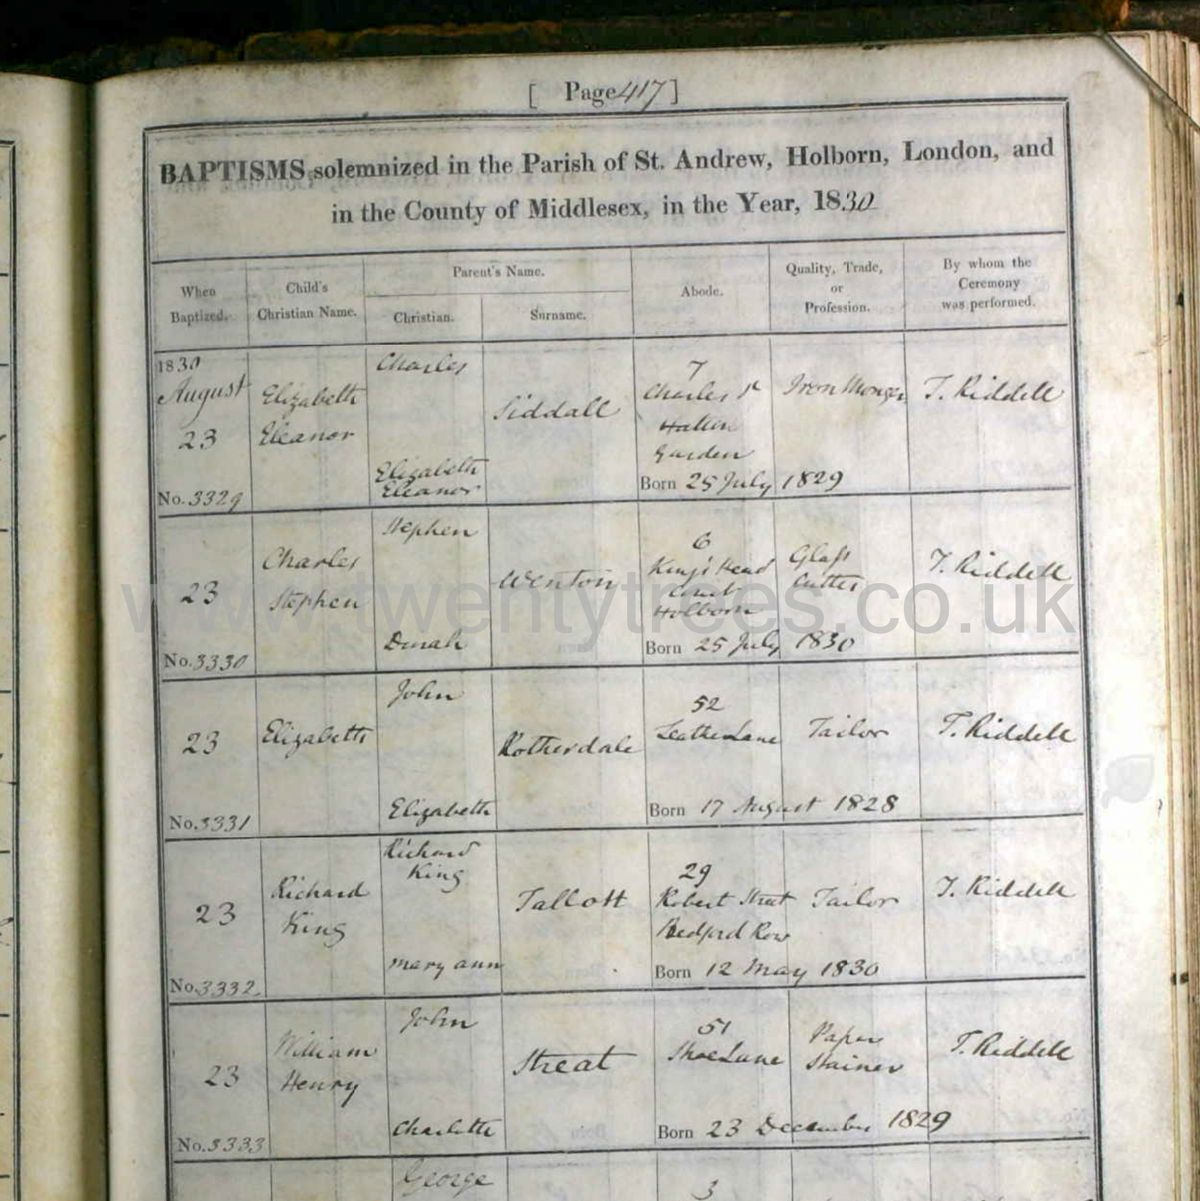 [ Page 417 ]
BAPTISMS solemnized in the Parish of St. Andrew, Holborn, London, and
in the County of Middlesex, in the Year, 1830
When Baptized.
Child's Christian Name.
Parent's Name.
Christian.
Surname.
Abode.
Quality, Trade, or Profession.
By whom the Ceremony was performed.
1830
August
23
No. 3329
Elizabeth
Eleanor
Charles
Elizabeth
Eleanor
Siddall
7
Charles St
Hatton
Garden
Born 25 July 1829
Iron Monger
T. Riddell
23
No. 3330
Charles
Stephen
Stephen
Dinah
Wenton
6
Kings Head
Court
Holborn
Born 25 July 1830
Glass
Cutter
T. Riddell
23
No. 3331
Elizabeth
John
Elizabeth
Rotherdale
52
Leather Lane
Born 17 August 1828
Tailor
T. Riddell
23
No. 3332
Richard
King
Richard
King
Mary Ann
Tallott
29
Robert Street
Bedford Row
Born 12 May 1830
Tailor
T. Riddell
23
No. 3333
William
Henry
John
Charlotte
Streat
51
Shoe Lane
Born 23 December 1829
Paper
Stainer
T. Riddell
George
3
www.twentytrees.co.uk